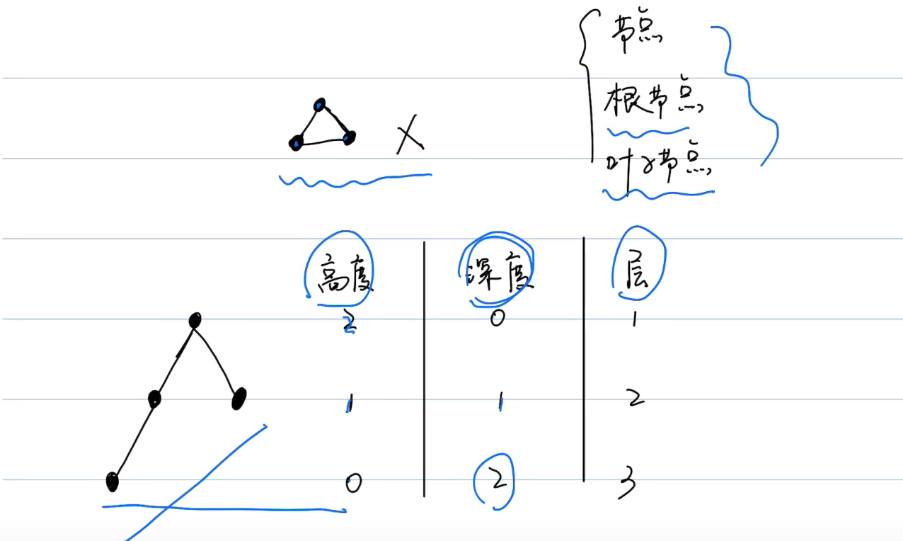 节点
根节点
X
叶子节点
高度 深度 层
2 0 1
1 1 2
0 2 3